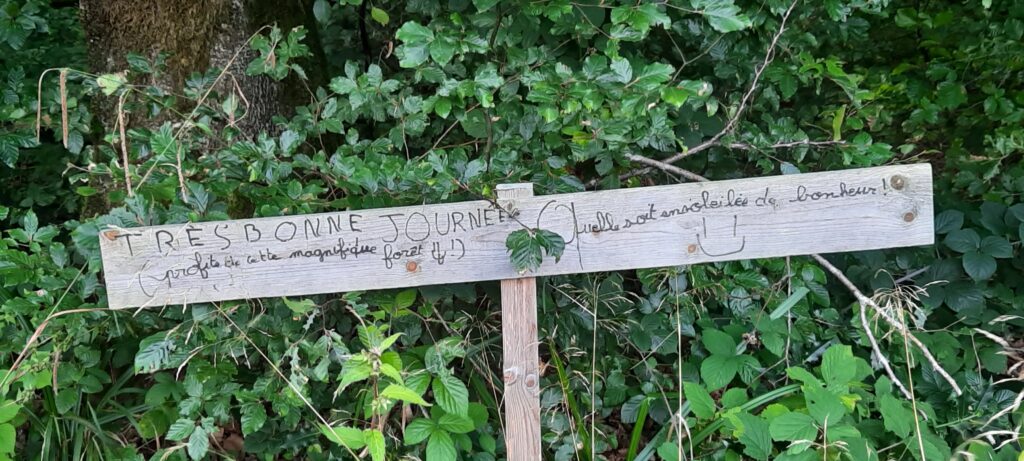 TRÈS BONNE JOURNÉE Quelle soit ensoleilée de bonheur!
(profite de cette magnifique forêt !)